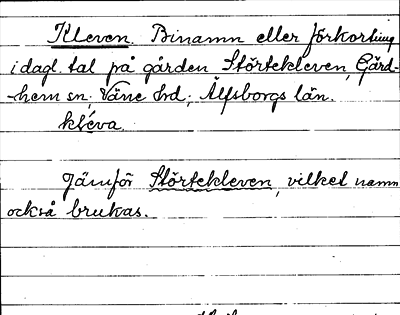 Kleven. Binamn eller förkortning
i dagl. tal på gården Störtekleven, Gärd-
-hem sn; Väne hd; Älfsborgs län.
kléva.
Jämför Störtekleven, vilket namn
också brukas.